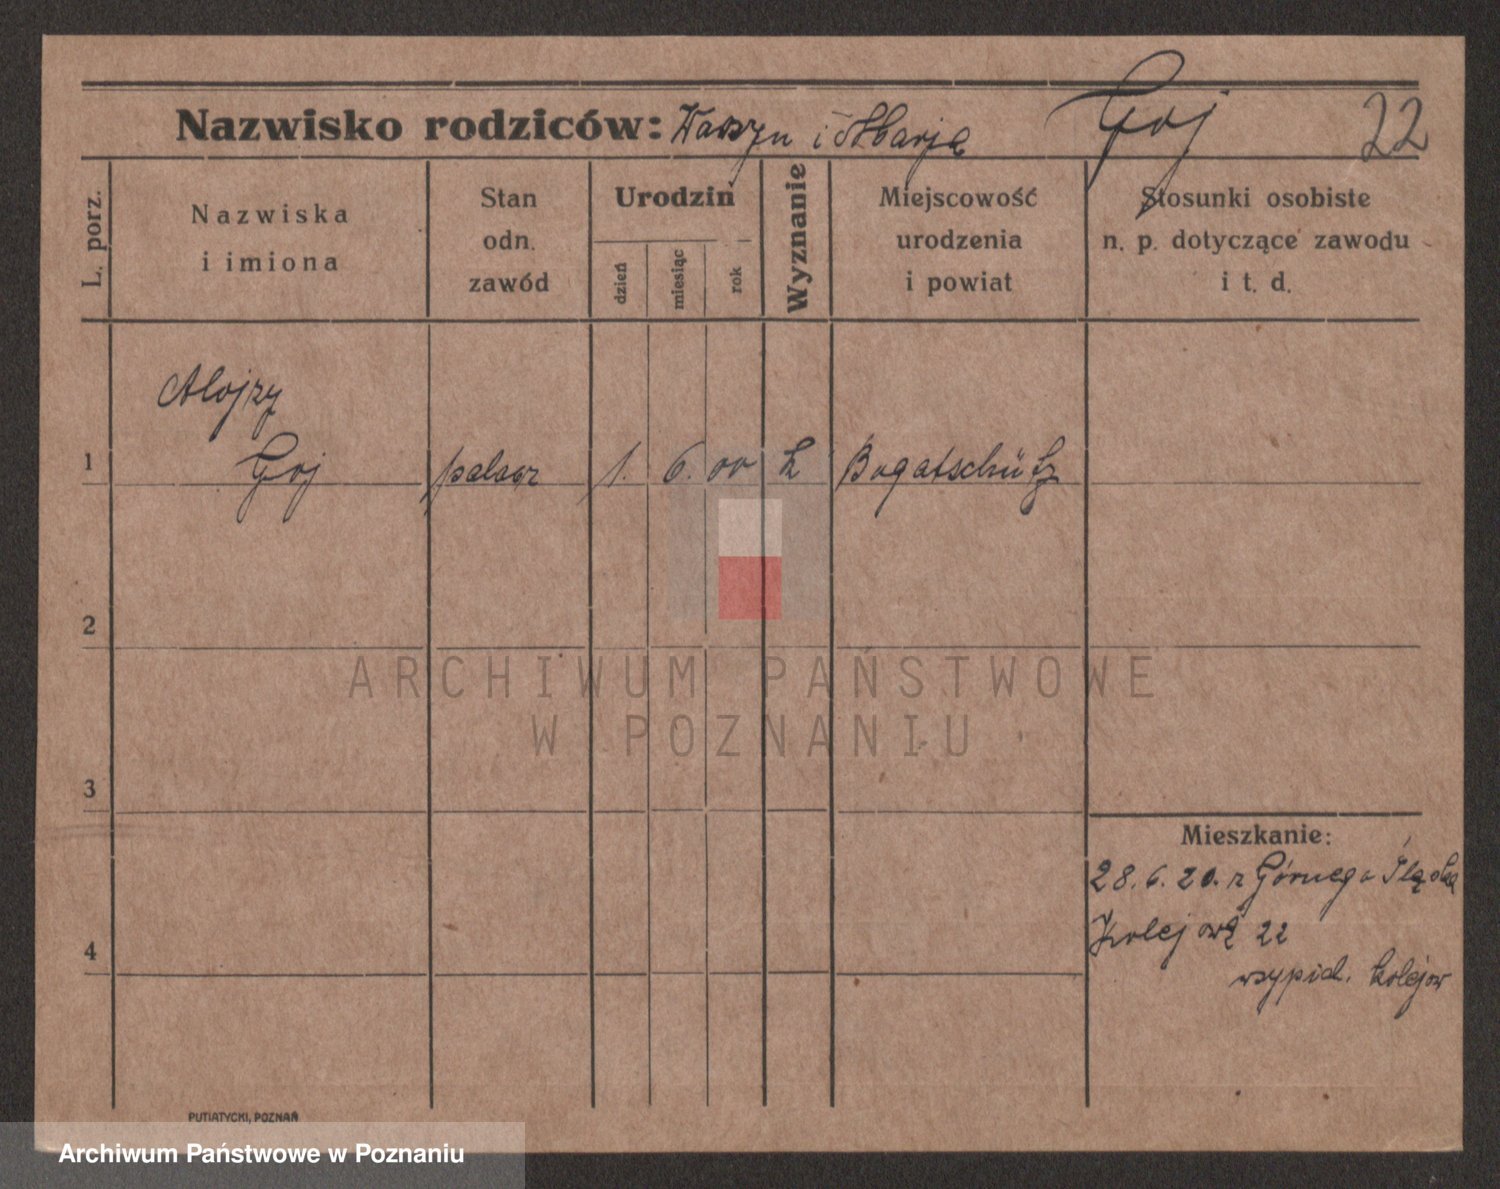 Nazwisko rodziców: Waszyn i Marja Goj 22
L. porz.
Nazwiska
i imiona
Stan
odn.
zawód
Urodzin
dzień
miesiąc
rok
Wyznanie
Miejscowość
urodzenia
i powiat
Stosunki osobiste
n. p. dotyczące zawodu
i t. d.
Alojzy
1 Goj palacz 1. 6. 00 k Bogatschütz
2
ARCHIWUM PAŃSTWOWE
W POZNANIU
3
Mieszkanie:
28. 6. 20. z Górnego Śląska
Kolejowa 22
4
kolejow
PUTIATYCKI, POZNAŃ
Archiwum Państwowe w Poznaniu